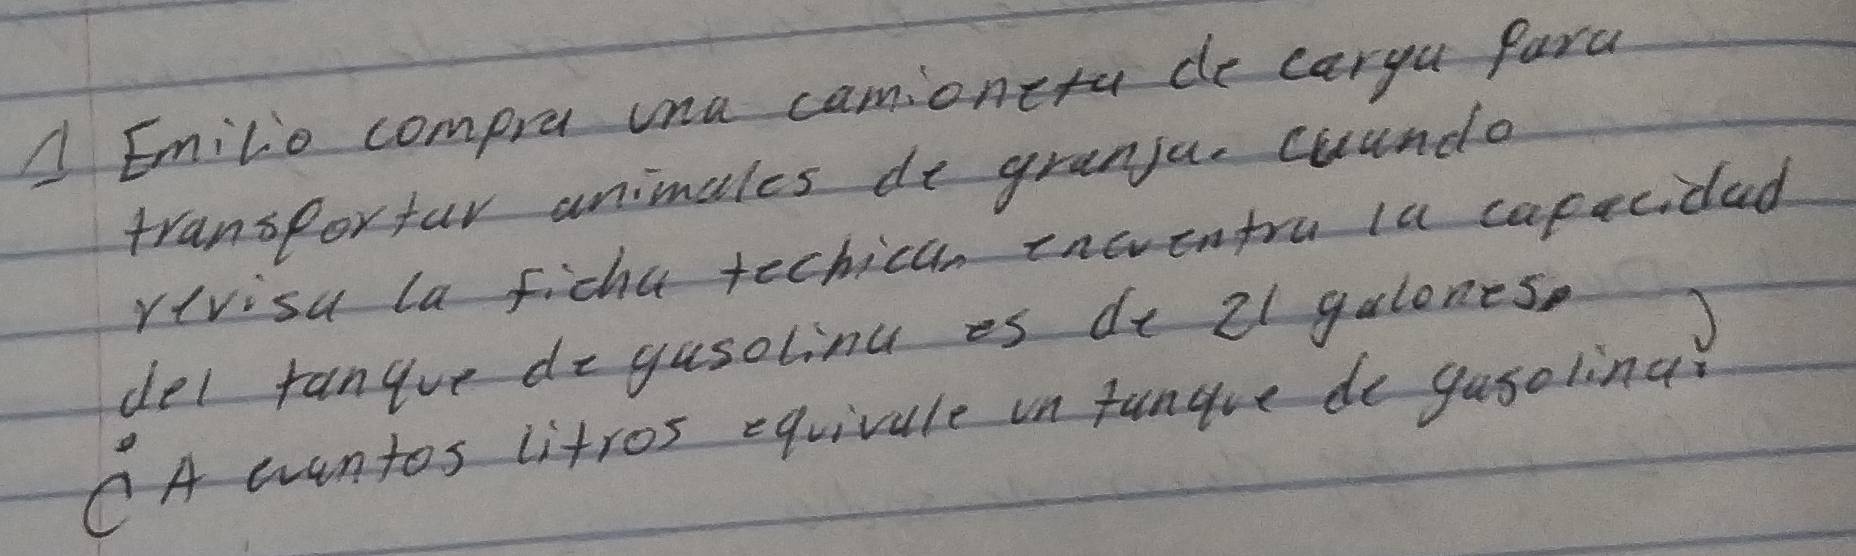 1 Emilio compra una camioneta de carga para
transportar animales de granja. cuando
revisa la ficha techica, encuentra la capacidad
del tanque de gasolina es de 21 galones.
¿A cuantos litros equivale un tanque de gasolina?